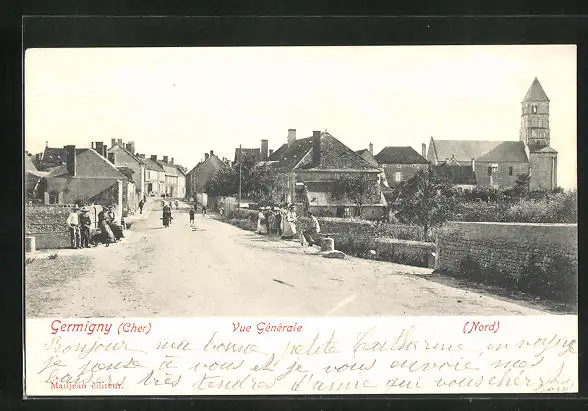 Germigny (Cher) Vue Générale (Nord)
Bonjour, ma bonne petite Catherine, en voyage
je pense à vous et je vous envoie mes
baisers très tendres d'amie qui vous cherit
Mailjean éditeur.